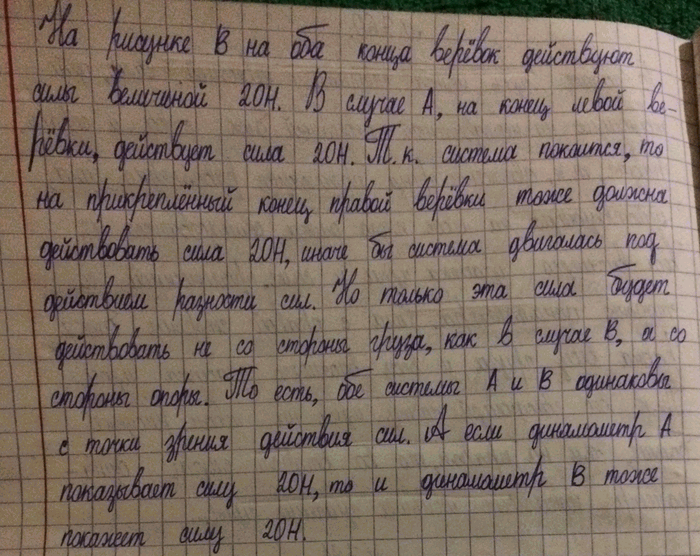 На рисунке В на оба конца верёвок действуют
силы величиной 20Н. В случае А, на конец левой ве-
рёвки, действует сила 20Н. Т.к. система покоится, то
на прикреплённый конец правой верёвки тоже должна
действовать сила 20Н, иначе бы система двигалась под
действием разности сил. Но только эта сила будет
действовать не со стороны груза, как в случае В, а со
стороны опоры. То есть, обе системы А и В одинаковы
с точки зрения действия сил. А если динамометр А
показывает силу 20Н, то и динамометр В тоже
покажет силу 20Н.